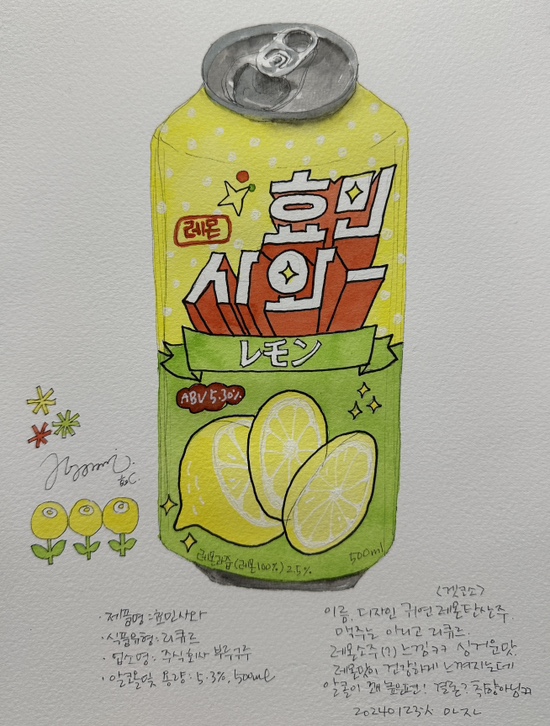 레몬
효민
사와-
レモン
ABV 5.30%
레몬과즙(레몬100%) 2.5%
500ml
Hyomin.
· 제품명: 효민사와
· 식품유형: 리큐르
· 업소명: 주식회사 부루구루
· 알코올 및 용량: 5.3%, 500ml
이름, 디자인 귀연 레몬탄산주
맥주는 아니고 리큐르.
레몬소주(?) 느낌ㅋㅋ 싱거운맛
레몬맛이 건강하게 느껴지는데
알콜이 꽤 높은편! 결론? 족향아님ㅋㅋ
20240123 마지